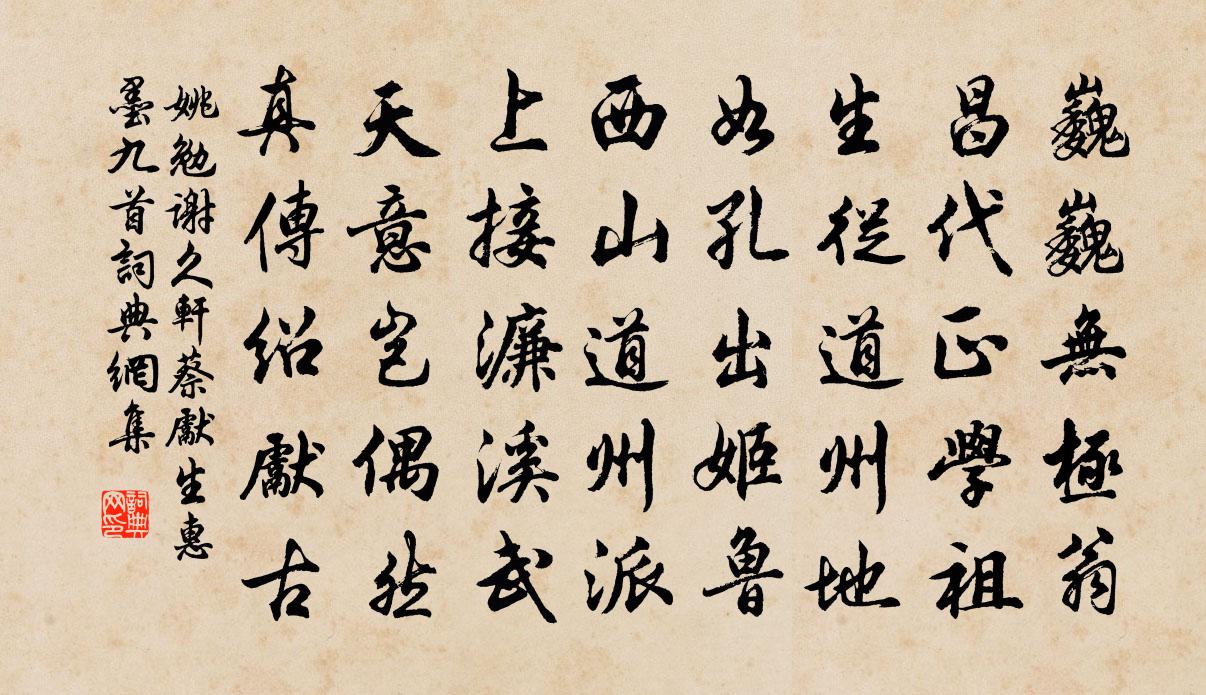 巍巍無極翁
昌代正學祖
生從道州地
如孔出姬魯
西山道州派
上接濂溪武
天意豈偶然
真傳紹獻古
姚勉謝久軒蔡獻生惠
墨九首詞典網集
詞典网印